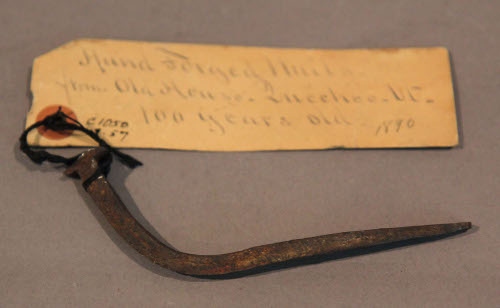 Hand Forged Nails
from Old House. Quechee. Vt.
100 years old. 1890
C1050
57